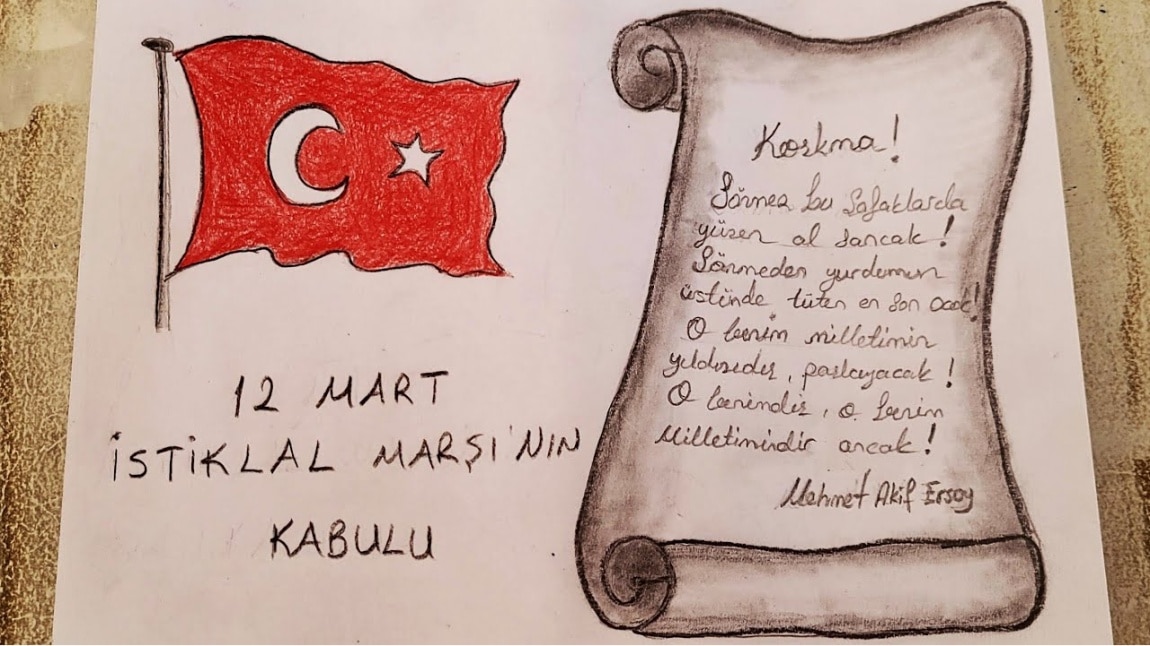 12 MART
İSTİKLAL MARŞI'NIN
KABULU
Korkma!
Sönmez bu Şafaklarda
yüzen al sancak!
Sönmeden yurdumun
üstünde tüten en son ocak!
O benim milletimin
yıldızıdır, parlayacak!
O benimdir, o benim
Milletimindir ancak!
Mehmet Akif Ersoy